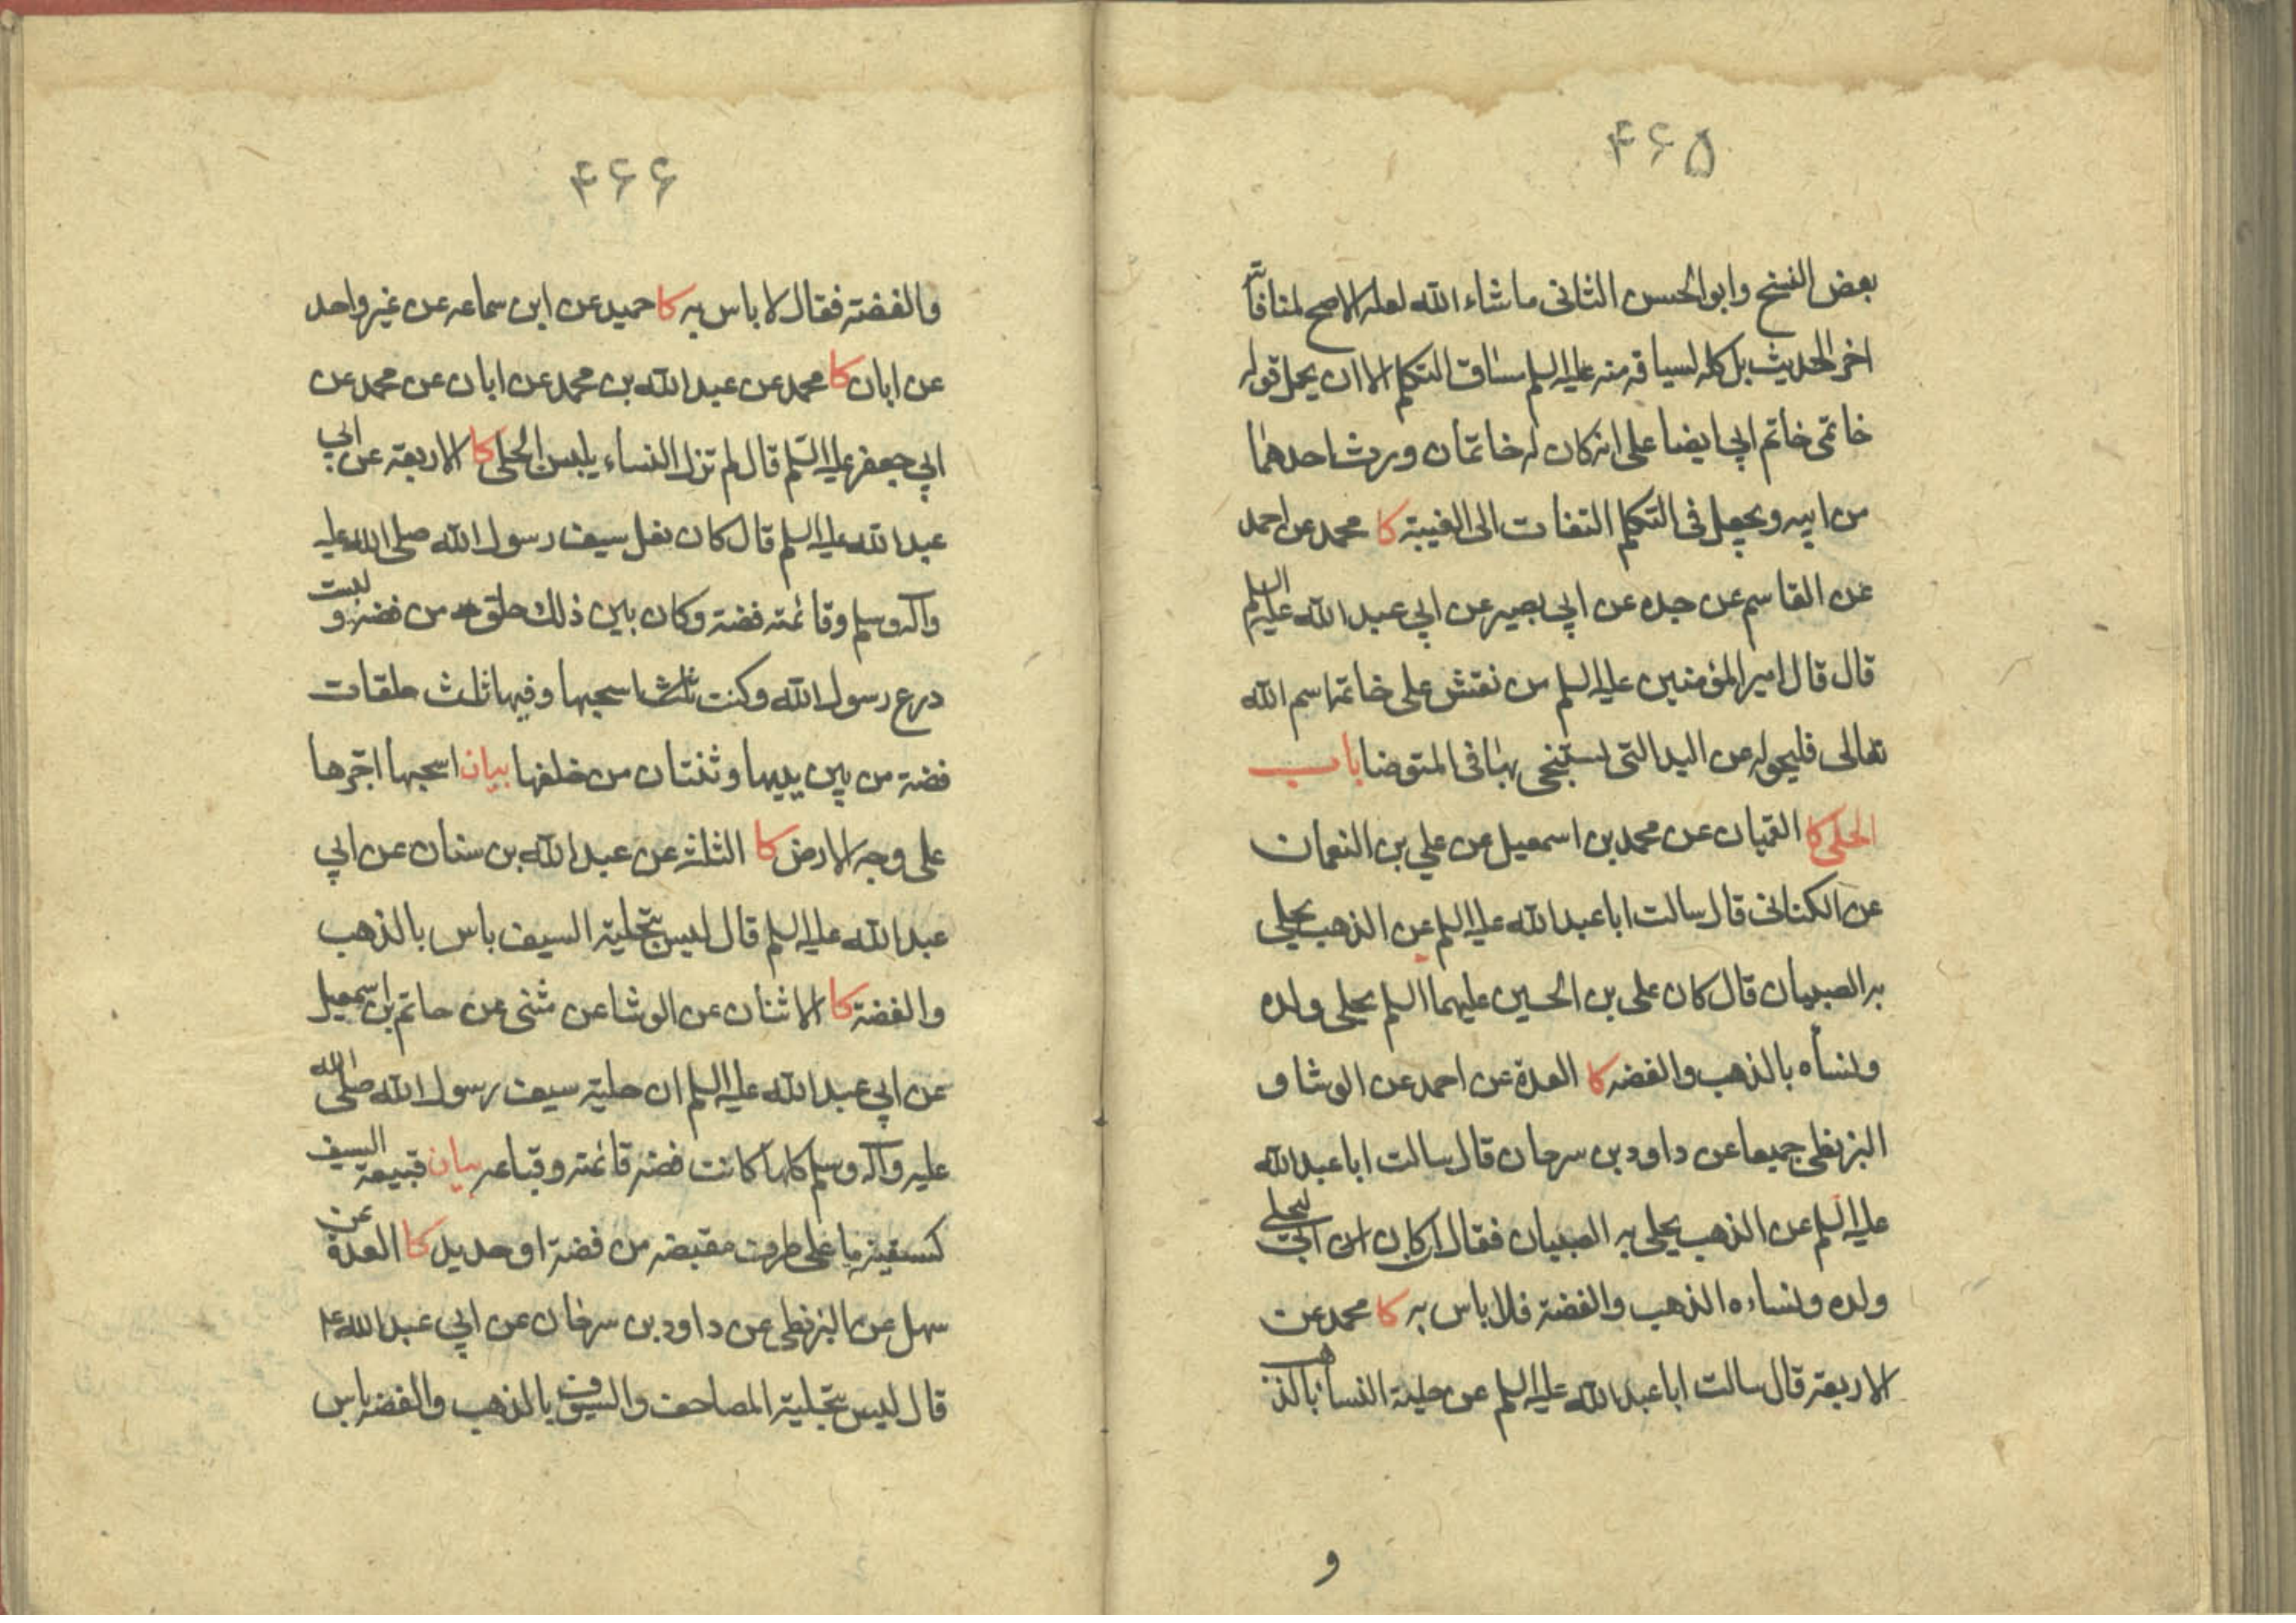 ۴۶۵
بعض النسخ وابو الحسن الثانى ما شاء الله لعله الاصح لمنافاته
اخر الحديث بل كله لسياقه منه عليه السلم مساق التكلم الا ان يحمل قوله
خاتمى خاتم ابي ايضا على انه كان له خاتمان ورث احدهما
من ابيه ويجعل فى التكلم التفات الى الغيبة كا محمد عن احمد
عن القاسم عن جده عن ابي بصير عن ابي عبد الله عليه السلم
قال قال امير المؤمنين عليه السلم من نقش على خاتمه اسم الله
تعالى فليحوله عن اليد التى يستنجى بها فى المتوضا باب
الحلى كا القميان عن محمد بن اسمعيل عن علي بن النعمان
عن الكنانى قال سالت ابا عبد الله عليه السلم عن الذهب يحلى
به الصبيان قال كان على بن الحسين عليهما السلم يحلى ولده
ونساه بالذهب والفضه كا العدة عن احمد عن الوشا و
البزنطى جميعا عن داود بن سرحان قال سالت ابا عبد الله
عليه السلم عن الذهب يحلى به الصبيان فقال ان كان ابي ليحلى
ولده ونساءه الذهب والفضة فلا باس به كا محمد عن
الاربعة قال سالت ابا عبد الله عليه السلم عن حلية النسا بالذهب
و
۴۶۶
والفضة فقال لا باس به كا حميد عن ابن سماعه عن غير واحد
عن ابان كا محمد عن عبد الله بن محمد عن ابان عن محمد عن
ابي جعفر عليه السلم قال لم تزل النساء يلبس الحلى كا الاربعة عن ابي
عبد الله عليه السلم قال كان نعل سيف رسول الله صلى الله عليه
وآله وسلم وقائمته فضة وكان بين ذلك حلق من فضة ولبست
درع رسول الله وكنت اسحبها وفيها ثلث حلقات
فضة من بين يديها وثنتان من خلفها بيان اسحبها اجرها
على وجه الارض كا الثلثة عن عبد الله بن سنان عن ابي
عبد الله عليه السلم قال ليس بتحلية السيف باس بالذهب
والفضة كا الاثنان عن الوشا عن مثنى عن حاتم بن اسمعيل
عن ابي عبد الله عليه السلم ان حلية سيف رسول الله صلى الله
عليه وآله وسلم كلها كانت فضة قائمته وقباعه بيان قبيعة السيف
كسفينة ما على طرف مقبضه من فضة او حديد كا العدة عن
سهل عن البزنطى عن داود بن سرحان عن ابي عبد الله ع
قال ليس بتحلية المصاحف والسيوف بالذهب والفضه باس